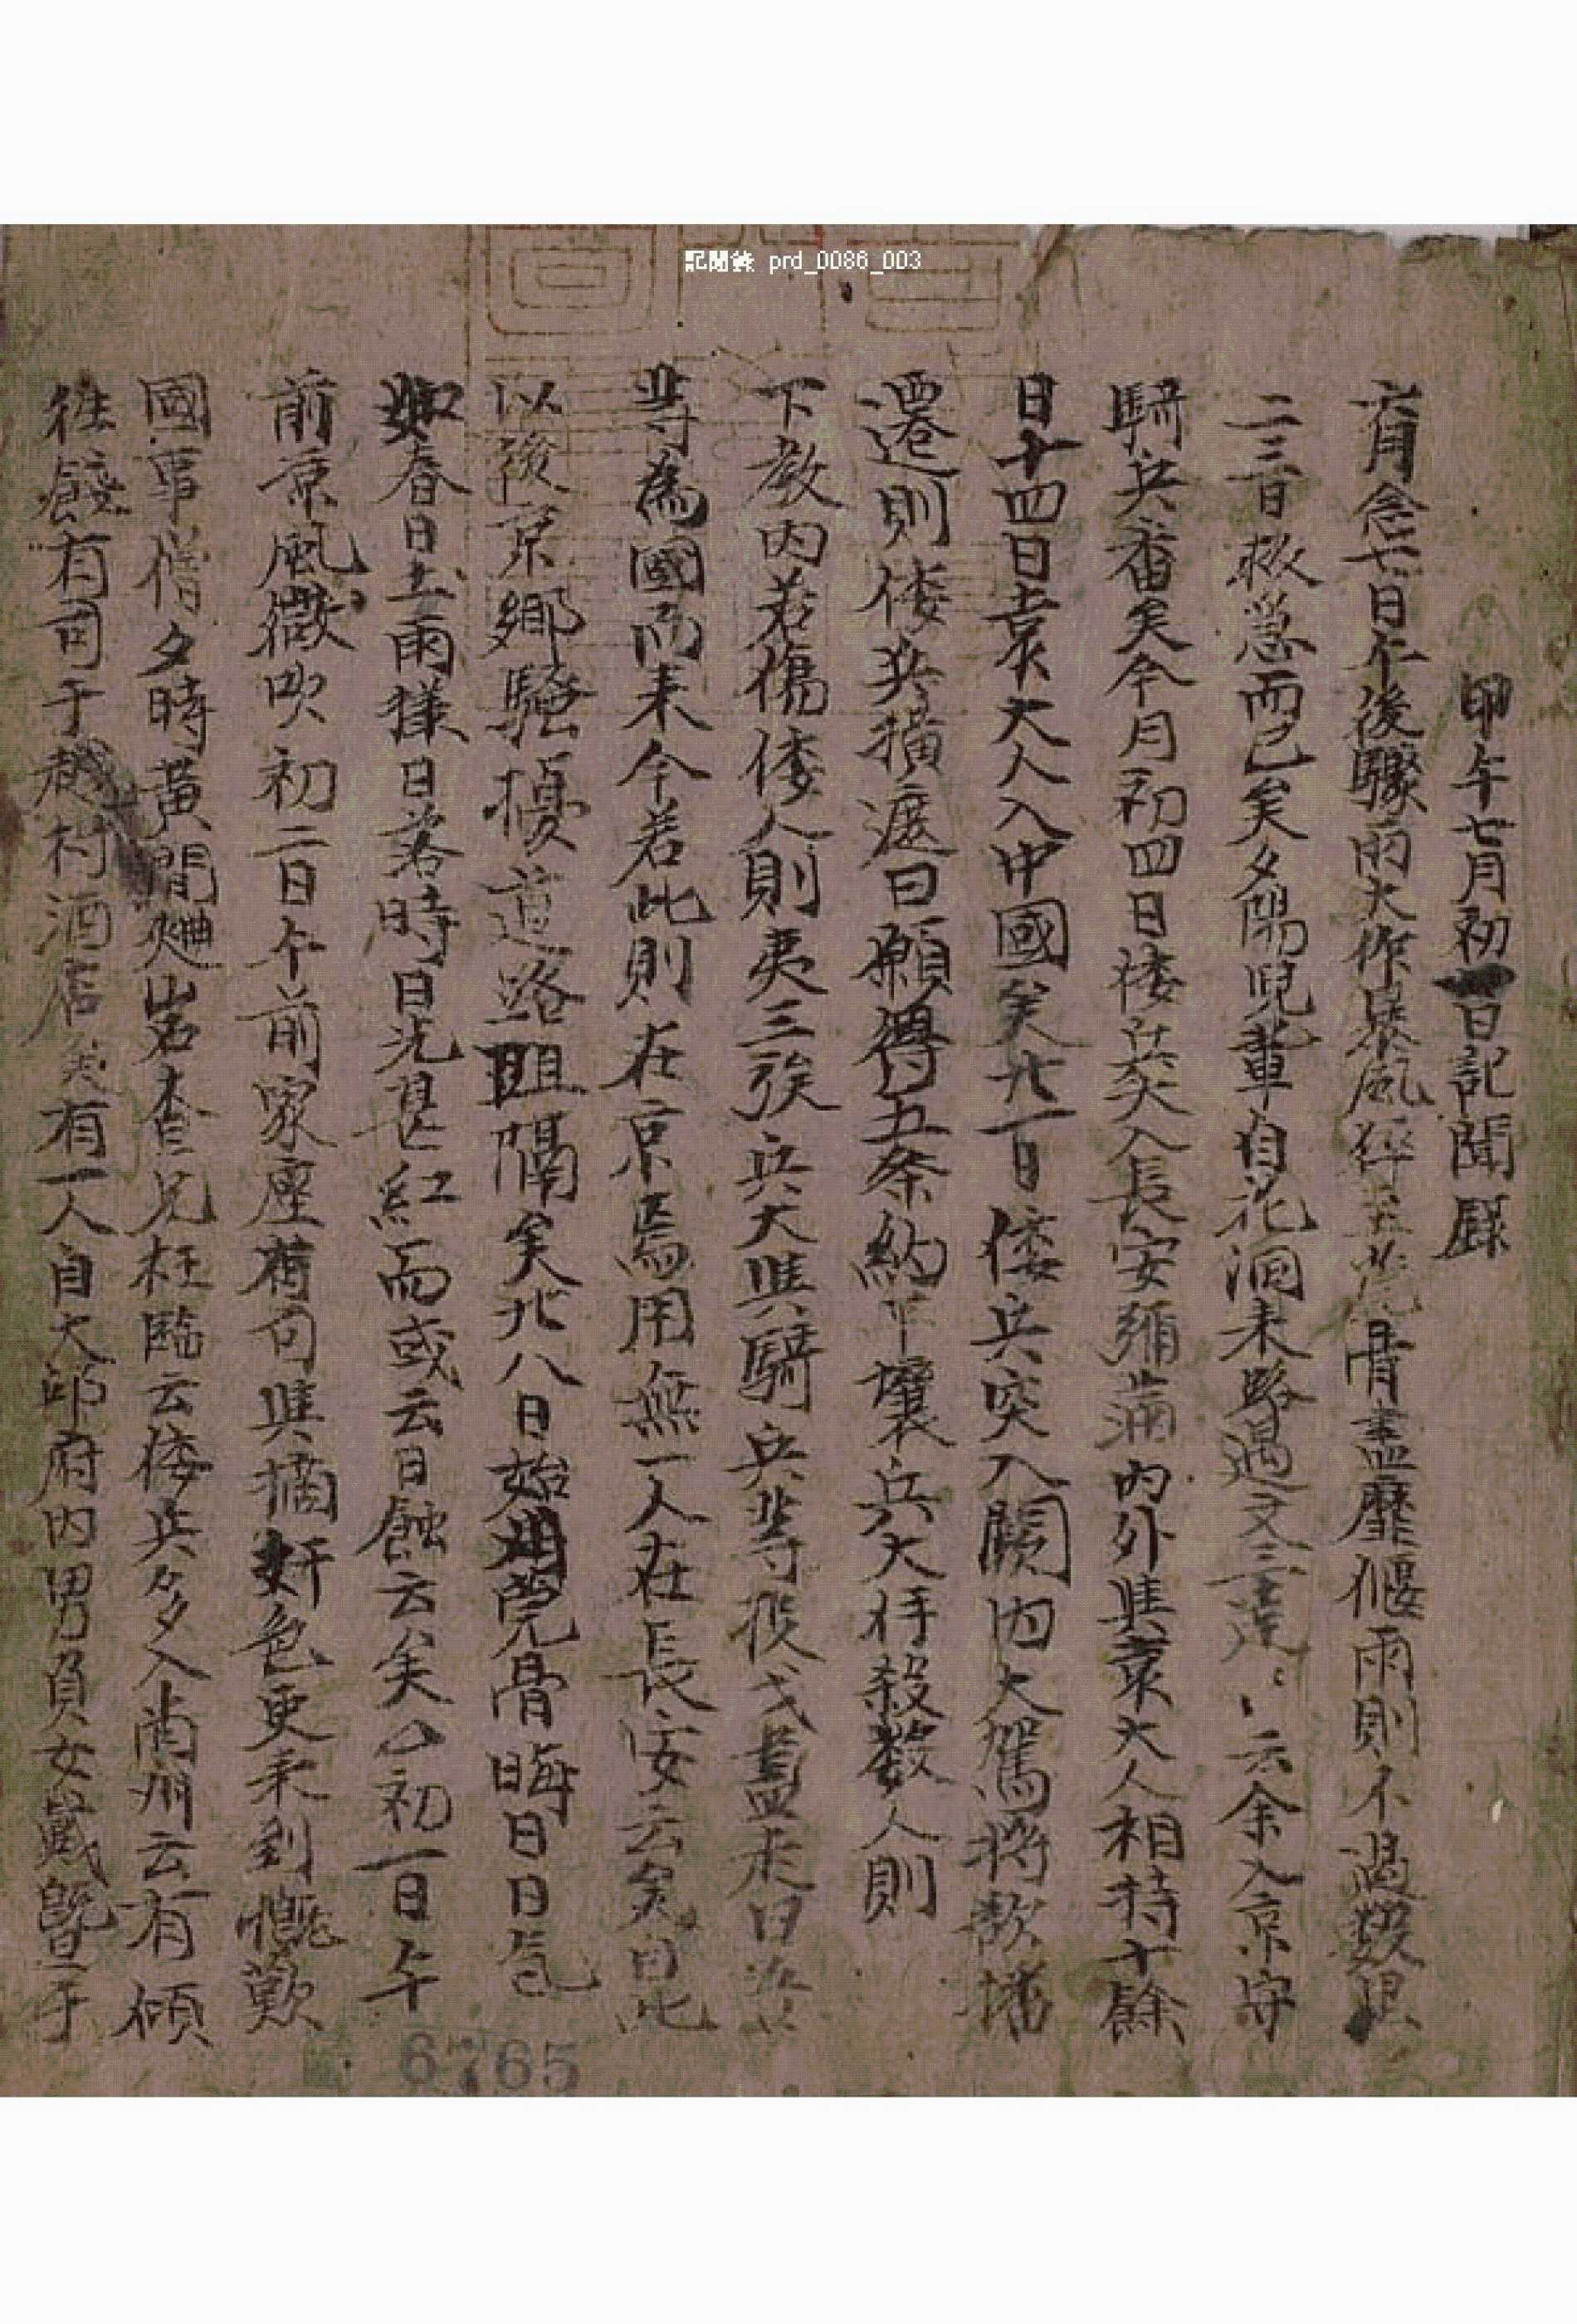 記聞錄 prd_0086_003
甲午七月初日記聞錄
六月念七日午後驟雨大作暴風猝盡靡偃雨則不過數
二三日救急而已矣夕陽兒輩自花洞来路遇文三達云余入京守
騎兵番矣今月初四日倭兵突入長安彌滿內外與袁大人相持十餘
日十四日袁大人入中國矣廿一日倭兵突入闕內大駕將欲播
遷則倭兵橫遮曰願得五条約平壤兵大將殺數人則
下教內若傷倭人則夷三族兵大與騎兵等投戈盡走曰
等為國而来今若此則在京焉用無一人在長安云矣自此
以後京鄉騷擾道路阻隔矣廿八日始晦日日氣
如春日土雨樣日落時日光甚紅而或云日蝕云矣初一日午
前京風微吹初二日午前家座荷司與摘奸色更来到慨歎
國事憎夕時黃澗廻岩查兄枉臨云倭兵多入尚州云有傾
往餞有司于越村酒店矣有一人自大邱府內男負女戴曁于
6765